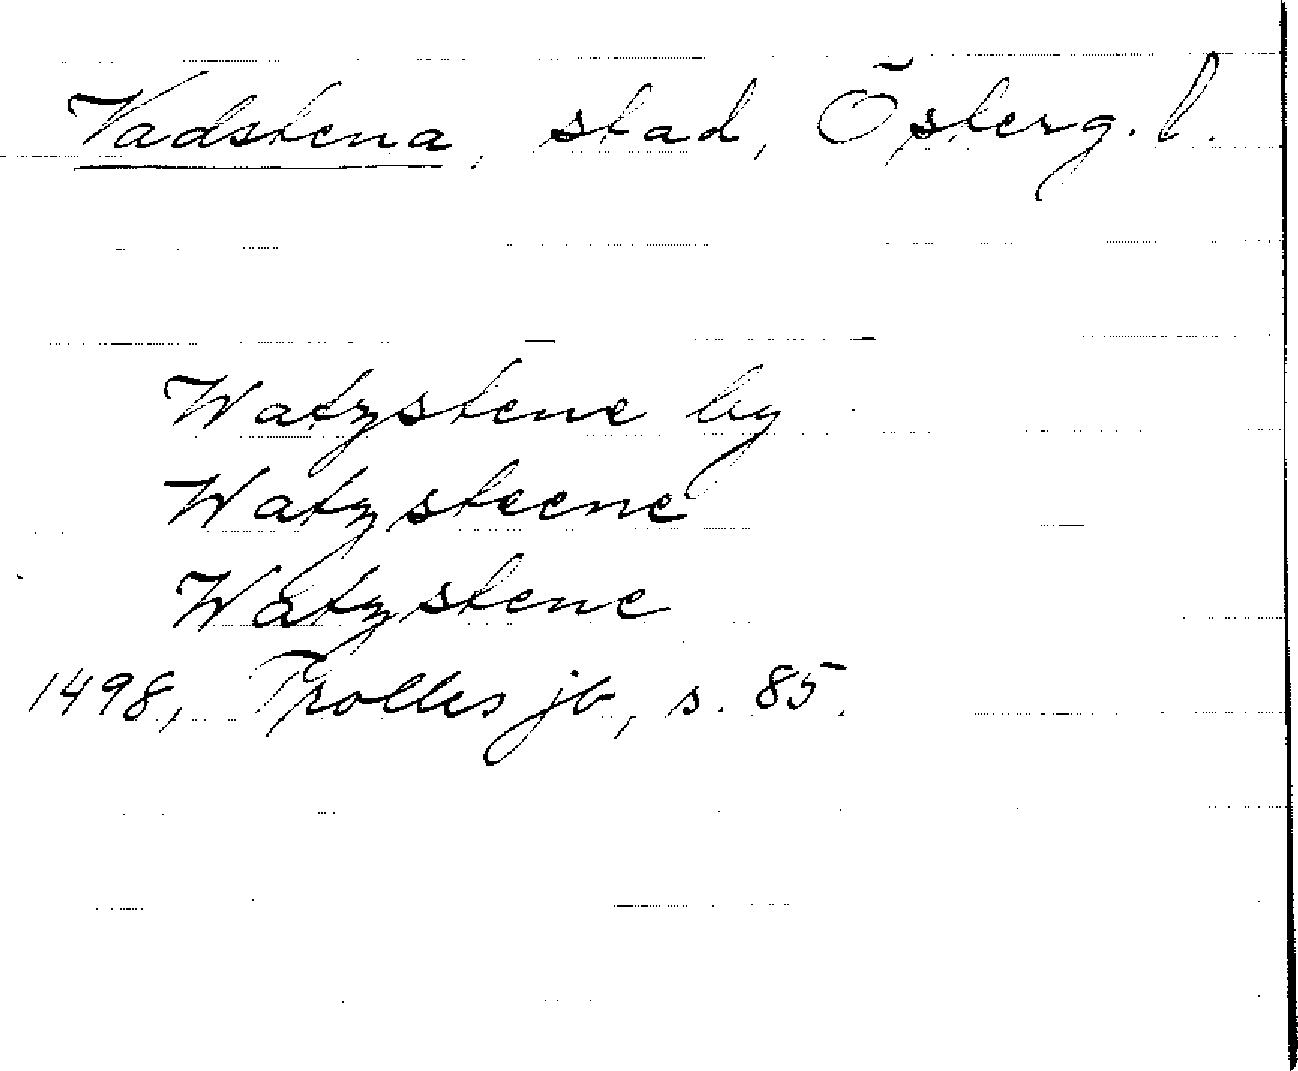 Vadstena, stad, Österg. l.
Watzstene by
Watzsteene
Watzstene
1498, Trolles jb, s. 85.